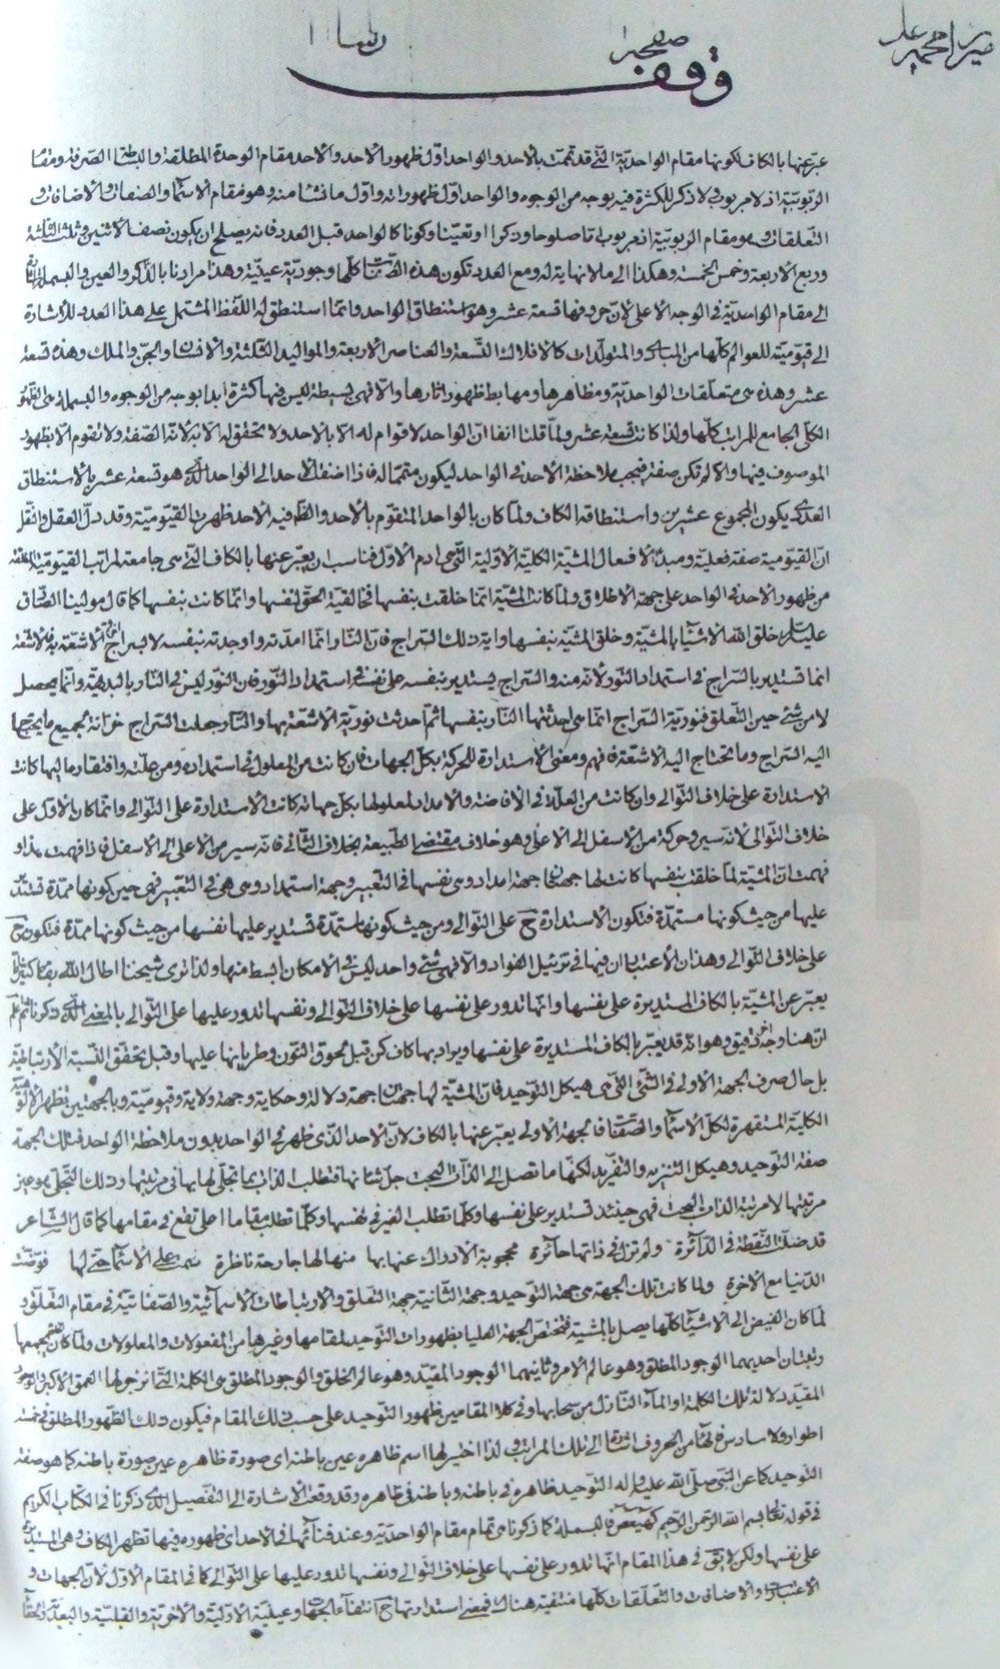 ميرزا محمد علي
صفحه رسا ١
وقف
عبّر عنها بالكاف لكونها مقام الواحدية التي قد تمت بالاحد والواحد اول ظهور الاحد والاحد مقام الوحدة المطلقة والبساطة الصرفة ومقام
الربوبية اذ لا مربوب لا ذكر للكثرة فيه بوجه من الوجوه والواحد اول ظهوراته واول ما نشا منه وهو مقام الاسماء والصفات والاضافات و
التعلقات وهو مقام الربوبية اذ مربوب تاصلوحا وذكرا او تعينا وكونا كالواحد قبل العدد فانه يصلح ان يكون نصف الاثنين وثلث الثلثة
وربع الاربعة وخمس الخمسة وهكذا الى ما لا نهاية له ومع العدد تكون هذه الصفات كلها وجودية عينية وهذا مرادنا بالذكر والعين والبسملة اشارة
الى مقام الواحدية في الوجه الاعلى لان حروفها تسعة عشر وهو استنطاق الواحد وانما استنطق له اللفظ المشتمل على هذا العدد للاشارة
الى قيوميته للعوالم كلها من المبادي والمتولدات كالافلاك التسعة والعناصر الاربعة والمواليد الثلثة والانسان والجن والملك وهذه تسعة
عشر وهذه هي متعلقات الواحدية ومظاهرها ومهابط ظهور اثارها والا فهي بسيطة ليس فيها كثرة ابدا بوجه من الوجوه والبسملة هي الظهور
الكلي الجامع للمراتب كلها ولذا كانت تسعة عشر ولما قلنا انفا ان الواحد لا قوام له الا بالاحد ولا تحقق له الا به لانه الصفة ولا تقوم الا بظهور
الموصوف فيها والا لم تكن صفة فيجب ملاحظة الاحد في الواحد ليكون متمما له فاذا اضفت الاحد الى الواحد الذي هو تسعة عشر بالاستنطاق
العددي يكون المجموع عشرين واستنطاقه الكاف ولما كان بالواحد المتقوم بالاحد والظاهر فيه الاحد ظهرت القيومية وقد دل العقل والنقل
ان القيومية صفة فعلية ومبدء الافعال المشية الكلية الاولية التي هي ادم الاول فناسب ان يعبر عنها بالكاف التي هي جامعة لمراتب القيومية المطلقة
من ظهور الاحد في الواحد على جهة الاطلاق ولما كانت المشية انما خلقت بنفسها فخالقية الحق لنفسها وانما كانت بنفسها كما قال مولينا الصادق
عليه السلم خلق الله الاشياء بالمشية وخلق المشية بنفسها واية ذلك السراج فان النار انما امدته واوجدته بنفسه لا بسراج اخر والاشعة به فالاشعة
انما تستدير بالسراج في استمداد النور لانه منه والسراج يستدير بنفسه على نفسه في استمداد النور فان النور ليس في النار بالبديهة وانما يحصل
لا من شئ حين التعلق فنورية السراج انما هي احدثتها النار بنفسها ثم احدثت نورية الاشعة بها والنار جعلت السراج خزانة لجميع ما يحتاج
اليه السراج وما تحتاج اليه الاشعة فافهم ومعنى الاستدارة للحركة بكل الجهات فان كانت من المعلول في استمداده من علته وافتقاره اليها كانت
الاستدارة على خلاف التوالي وان كانت من العلة في الافاضة والامداد لمعلولها بكل جهاته كانت الاستدارة على التوالي وانما كان الاول على
خلاف التوالي لانه سير وحركة من الاسفل الى الاعلى وهو خلاف مقتضى الطبيعة بخلاف الثاني فانه سير من الاعلى الى الاسفل فاذا فهمت هذا و
فهمت ان المشية لما خلقت بنفسها كانت لها جهتان جهة امداد وهي نفسها في التعبير وجهة استمداد وهي هي في التعبير فهي حين كونها ممدة تستدير
عليها من حيث كونها مستمدة فتكون الاستدارة ح على التوالي ومن حيث كونها مستمدة تستدير عليها نفسها من حيث كونها ممدة فتكون ح
على خلاف التوالي وهذان الاعتباران فيها في تزئيل الفواد والا فهي شئ واحد ليس في الامكان ابسط منها ولذا ترى شيخنا اطال الله بقاه كثيرا
يعبر عن المشية بالكاف المستديرة على نفسها وانها تدور على نفسها على خلاف التوالي ونفسها تدور عليها على التوالي بالمعنى الذي ذكرنا ثم اعلم
ان هنا وجه اخر دقيق وهو انه قد يعبر بالكاف المستديرة على نفسها ويراد بها كاف كن قبل لحوق النون وطريانها عليها وقبل تحقق النسبة الارتباطية
بل حال صرف الجهة الاولى في الشئ التي هي هيكل التوحيد فان المشية لها جهتان جهة دلالة وحكاية وجهة ولاية وقيومية وبالجهتين تظهر الالوهية
الكلية المتقهرة لكل الاسماء والصفات فالجهة الاولى يعبر عنها بالكاف لان الاحد الذي ظهر في الواحد بدون ملاحظة الواحد فتلك الجهة
صفة التوحيد وهيكل التنزيه والتفريد لكنها ما تصل الى الذات البحت جل شانها فتطلب الذات بما تجلى لها بها في مرتبتها وذلك التجلي هو عين
مرتبتها لا مرتبة الذات البحت فهي حينئذ تستدير على نفسها وكلما تطلب الغير في نفسها وكلما تطلب مقاما اعلى تقع في مقامها كما قال الشاعر
قد ضلت النقطة في الدائرة ولم تزل في ذاتها حائرة محجوبة الادراك عنها بها منها لها جارحة ناظرة سمت على الاسماء حتى لها فوضت
الدنيا مع الاخرة ولما كانت تلك الجهة هي جهة التوحيد وجهة الثانية جهة التعلق والارتباطات الاسمائية والصفاتية في مقام التعلق و
لما كان الفيض الى الاشياء كلها يصل بالمشية فتختص الجهة العليا بظهورات التوحيد لمقامها وغيرها من المفعولات والمعلولات ولما كان جميعها
رتبتان احديهما الوجود المطلق وهو عالم الامر وثانيهما الوجود المقيد وهو عالم الخلق والوجود المطلق هي الكلمة التي انزجر لها العمق الاكبر والوجود
المقيد دلالة تلك الكلمة او الماء النازل من سحابها وفي كلا المقامين ظهور التوحيد على حسب ذلك المقام فيكون ذلك الظهور المطلق في خمسة
اطوار ولا سادس من الحروف اشارة الى تلك المراتب ولذا اختير لها اسم ظاهره عين باطنه اي صورة ظاهره عين صورة باطنه كما هو صفة
التوحيد كما عن النبي صلى الله عليه واله التوحيد ظاهره في باطنه وباطنه في ظاهره وقد وقعت الاشارة الى التفصيل الذي ذكرنا في الكتاب الكريم
في قوله تعالى بسم الله الرحمن الرحيم كهيعص فالبسملة كما ذكرنا هي تمام مقام الواحدية وعند فنائها في الاحد اي ظهوره فيها تظهر الكاف وهي المستديرة
على نفسها ولكن في هذا المقام انها تدور على نفسها على خلاف التوالي ونفسها تدور عليها على التوالي كما في المقام الاول لان الجهات و
الاعتبارات والاضافات والتعلقات كلها منتفية هناك فمعنى استدارتها ح انتفاء الجهات وعينية الاولية والاخرية والقبلية والبعدية